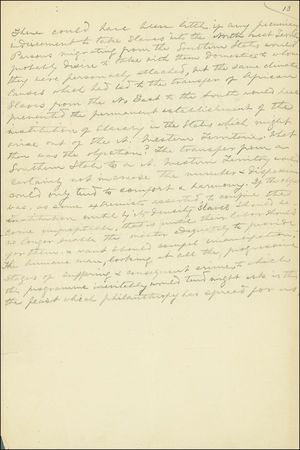 13
There could have been little if any pecuniary
inducement to take Slaves into the North West Territory
Persons migrating from the Southern States would
probably desire to take with them Domestics to whom
they were personally attached, but the same climatic
causes which had led to the transfer of African
Slaves from the No East to the South would have
prevented the permanent establishment of the
institution of Slavery in the States which might
arise out of the N. Western Territory. What
then was the objection? The transfer from a
Southern State to a N. Western Territory would
certainly not increase the number & dispersion
could only tend to comfort & harmony. If the object
was, as some extremists asserted to confine the
institution until by its density Slaves should be-
come unprofitable, that is until their labor should
no longer enable the master adequately to provide
for them, & want should compel emancipation,
the humane man, looking at all the progressive
stages of suffering & consequent crime, to which
this programme inevitably would tend might ask is this
the feast which philanthropy has spread for us